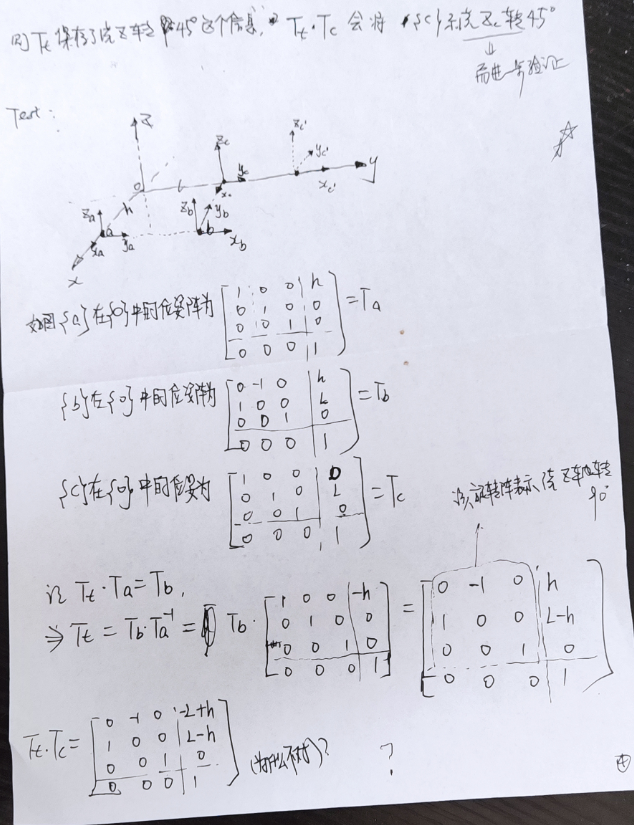 则Tt保存了绕Z转45°这个信息, Tt·Tc会将{c}系绕Zc转45°
而进一步验证
Test:
z
zc
zc'
yc'
y
o
L
yc
xc
xc'
h
za
a
ya
xa
x
zb
yb
b
xb
如图{a}在{o}中的位姿阵为
[1 0 0 h
0 1 0 0
0 0 1 0
0 0 0 1] = Ta
{b}在{o}中的位姿阵为
[0 -1 0 h
1 0 0 L
0 0 1 0
0 0 0 1] = Tb
{c}在{o}中的位姿为
[1 0 0 0
0 1 0 L
0 0 1 0
0 0 0 1] = Tc
该旋转阵表示绕Z轴旋转
90°
让 Tt·Ta=Tb,
⇒ Tt = Tb·Ta⁻¹ = Tb·
[1 0 0 -h
0 1 0 0
0 0 1 0
0 0 0 1]
=
[0 -1 0 h
1 0 0 L-h
0 0 1 0
0 0 0 1]
Tt·Tc=
[0 -1 0 -L+h
1 0 0 L-h
0 0 1 0
0 0 0 1]
(为什么不对)?
?
④